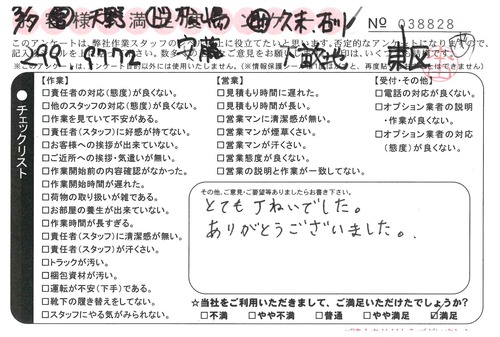 No 038828
チェックリスト
【作業】
□責任者の対応(態度)が良くない。
□他のスタッフの対応(態度)が良くない。
□作業を見ていて不安がある。
□責任者(スタッフ)に好感が持てない。
□お客様への挨拶が出来ていない。
□ご近所への挨拶・気遣いが無い。
□作業開始前の内容確認がなかった。
□作業開始時間が遅れた。
□荷物の取り扱いが雑である。
□お部屋の養生が出来ていない。
□作業時間が長すぎる。
□責任者(スタッフ)に清潔感が無い。
□責任者(スタッフ)が汗くさい。
□トラックが汚い。
□梱包資材が汚い。
□運転が不安(下手)である。
□靴下の履き替えをしてない。
□スタッフにやる気がみられない。
【営業】
□見積もり時間に遅れた。
□見積もり時間が長い。
□営業マンに清潔感が無い。
□営業マンが煙草くさい。
□営業マンが汗くさい。
□営業態度が良くない。
□営業の説明と作業が一致してない。
【受付・その他】
□電話の対応が良くない。
□オプション業者の説明
・作業が良くない。
□オプション業者の対応
(態度)が良くない。
その他、ご意見・ご要望等ありましたらお書き下さい。
とても丁ねいでした。
ありがとうございました。
☆当社をご利用いただきまして、ご満足いただけたでしょうか?
□不満 □やや不満 □普通 □やや満足 ☑満足